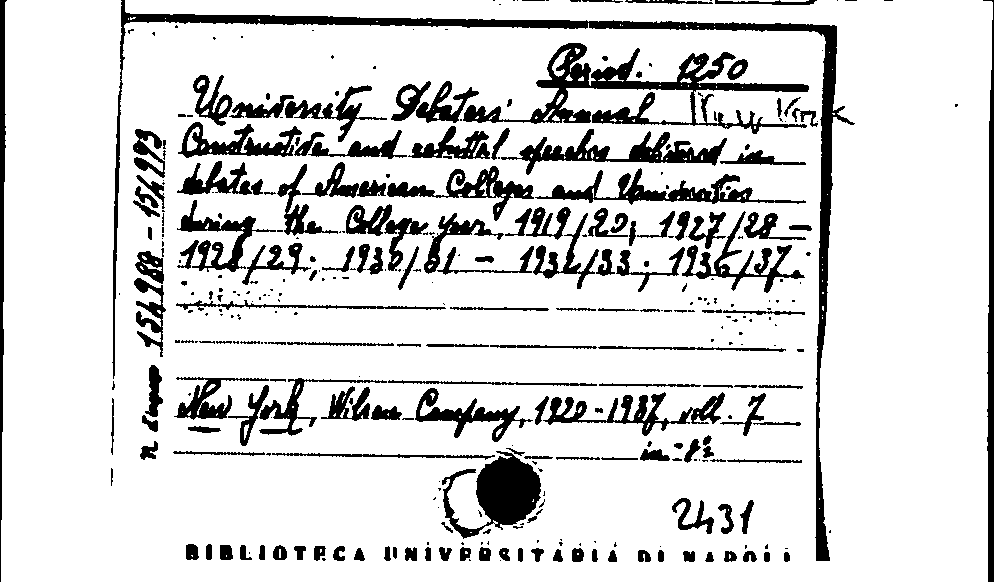 Period. 1250
University Debaters' Annual. New York
Constructive and rebuttal speeches delivered in
debates of American Colleges and Universities
during the College year. 1919/20; 1927/28 –
1928/29; 1930/31 – 1932/33; 1936/37.
New York, Wilson Company, 1920-1937, voll. 7
in-8º
2431
BIBLIOTECA UNIVERSITARIA DI NAPOLI
n. d'ingresso 154988 – 154993